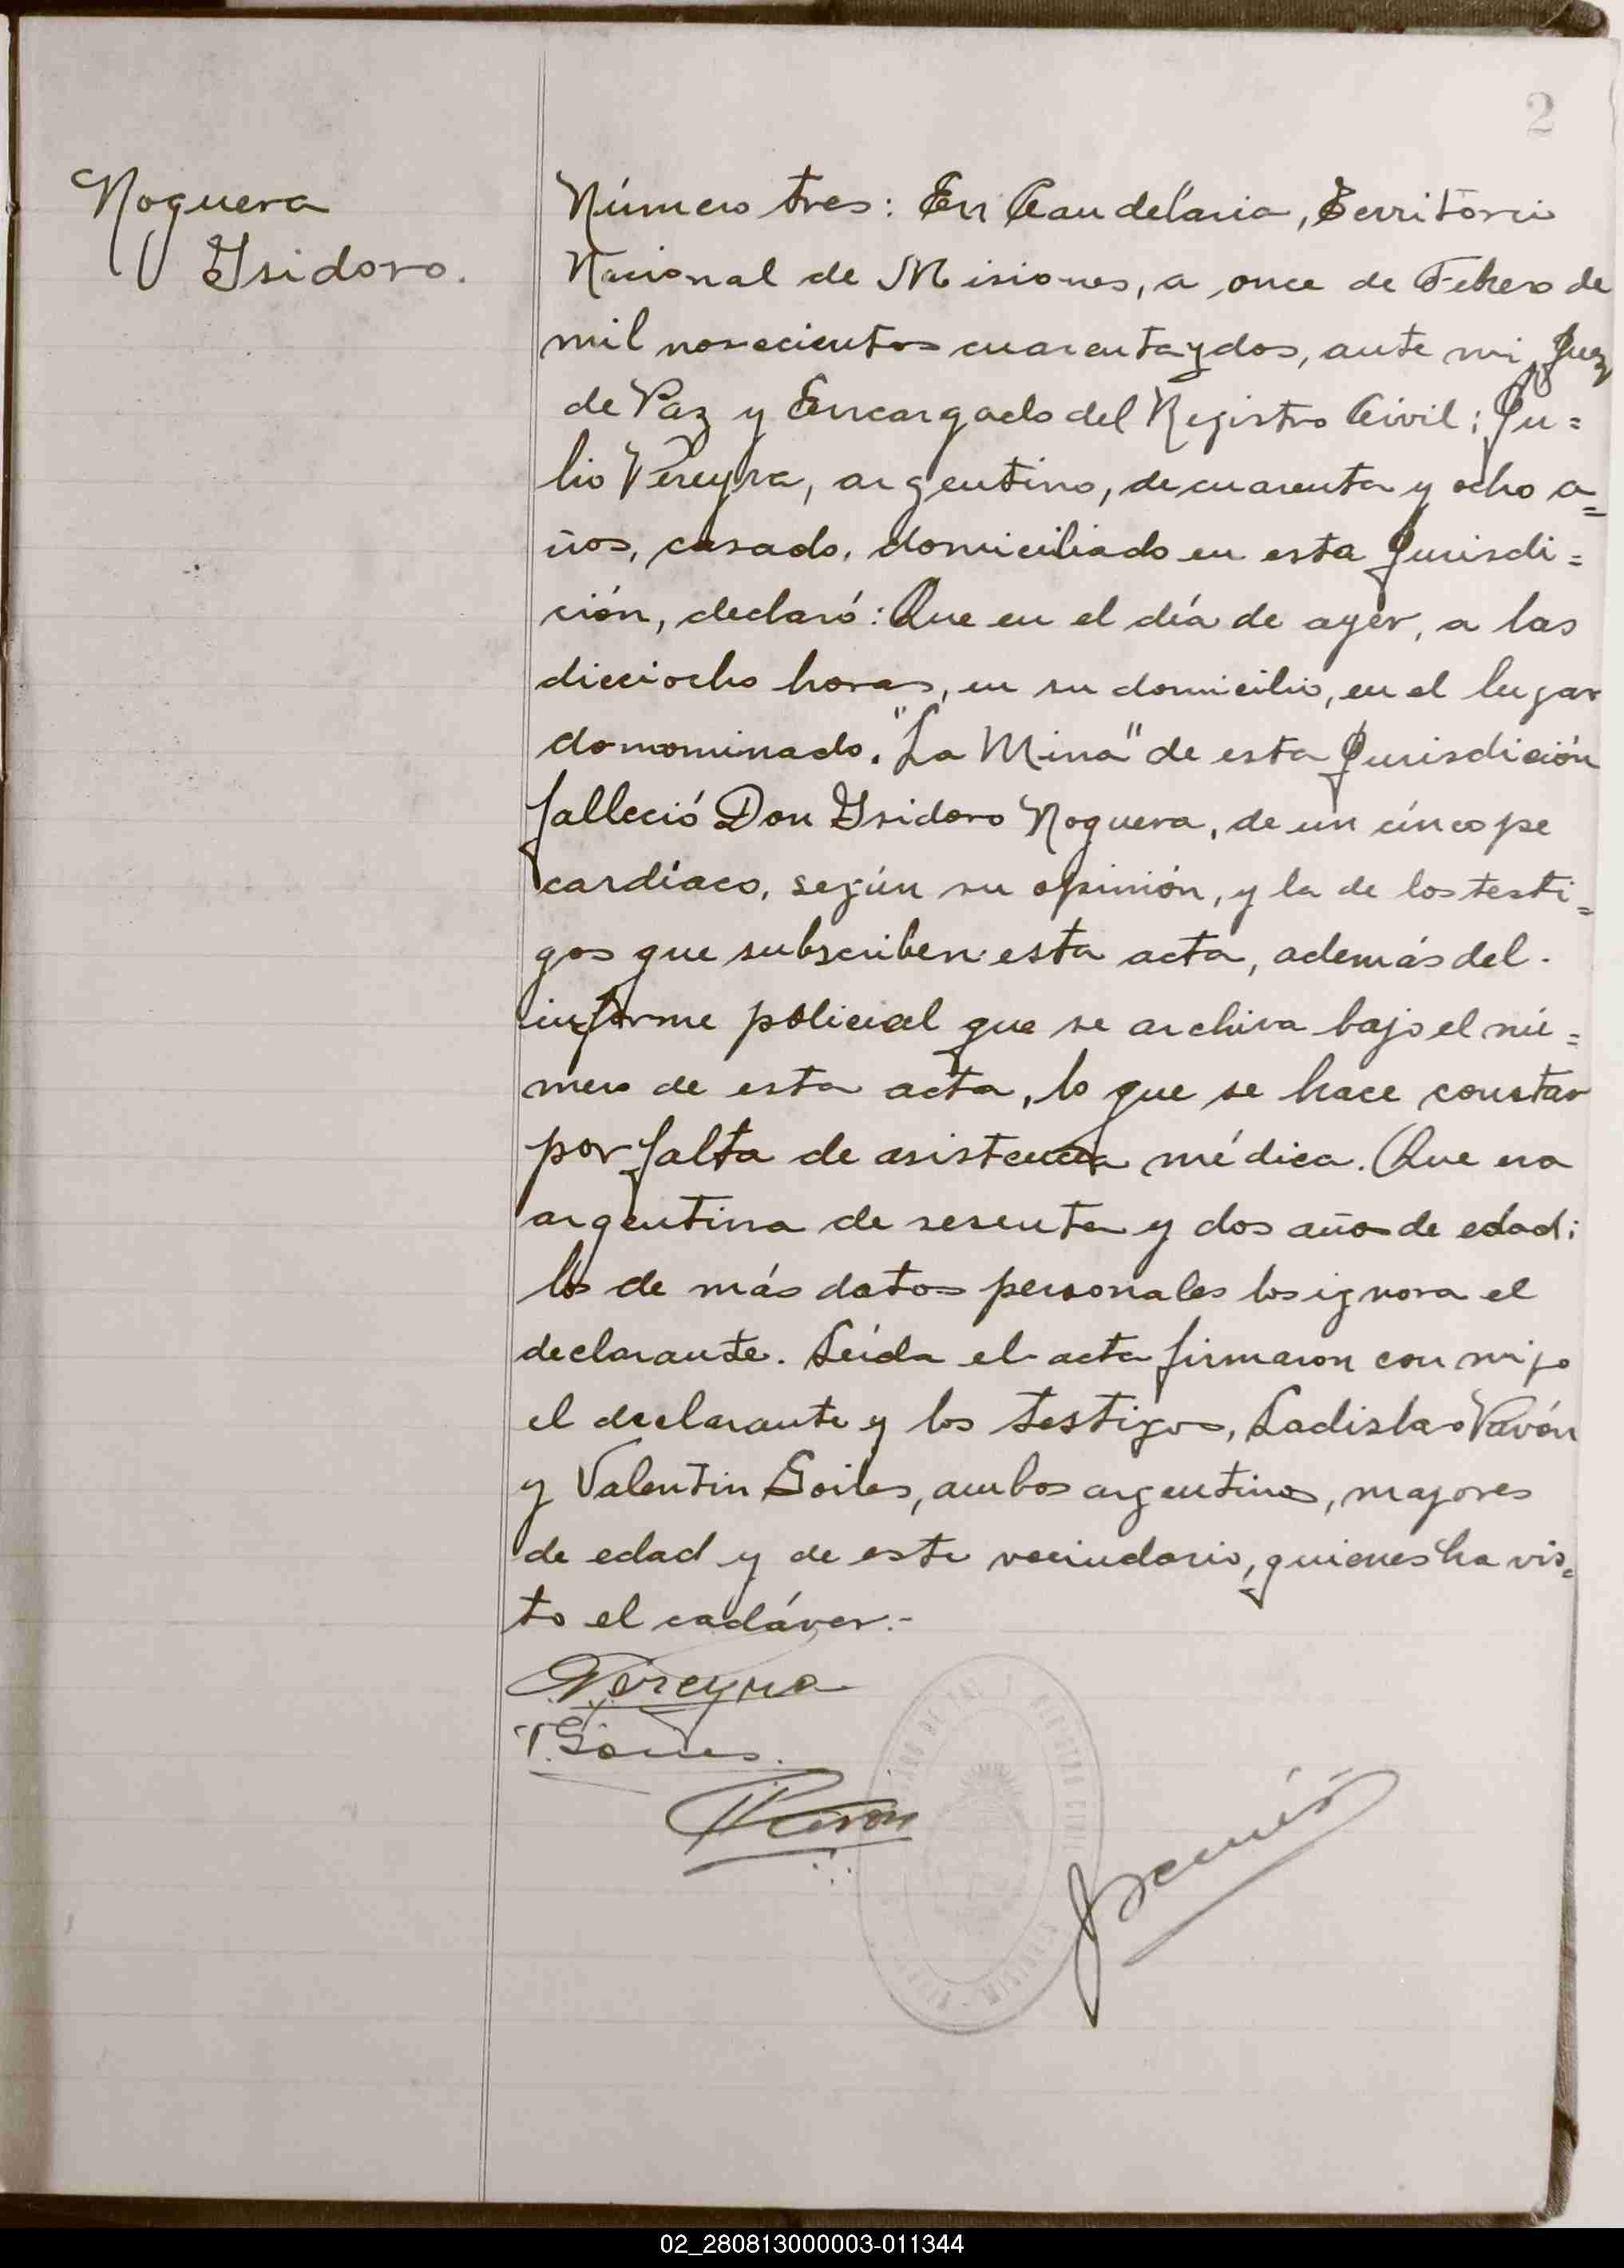 2
Noguera
Isidoro.
Número tres: En Candelaria, Territorio
Nacional de Misiones, a once de Febrero de
mil novecientos cuarentaydos, ante mi, Juez
de Paz y Encargado del Registro Civil; Ju=
lio Pereyra, argentino, de cuarenta y ocho a=
ños, casado, domiciliado en esta Jurisdi=
ción, declaró: Que en el día de ayer, a las
dieciocho horas, en su domicilio, en el lugar
domominado, "La Mina" de esta Jurisdición
falleció Don Isidoro Noguera, de un cíncope
cardíaco, según su opinión, y la de los testi=
gos que subscriben esta acta, además del
informe policial que se archiva bajo el nú=
mero de esta acta, lo que se hace constar
por falta de asistencia médica. Que era
argentina de sesenta y dos años de edad;
los de más datos personales los ignora el
declarante. Leída el acta firmaron con migo
el declarante y los testigos, Ladislao Pavón
y Valentin, ambos argentinos, mayores
de edad y de este vecindario, quienes ha vis=
to el cadáver.-
Pereyra
Pavón
02_280813000003-011344